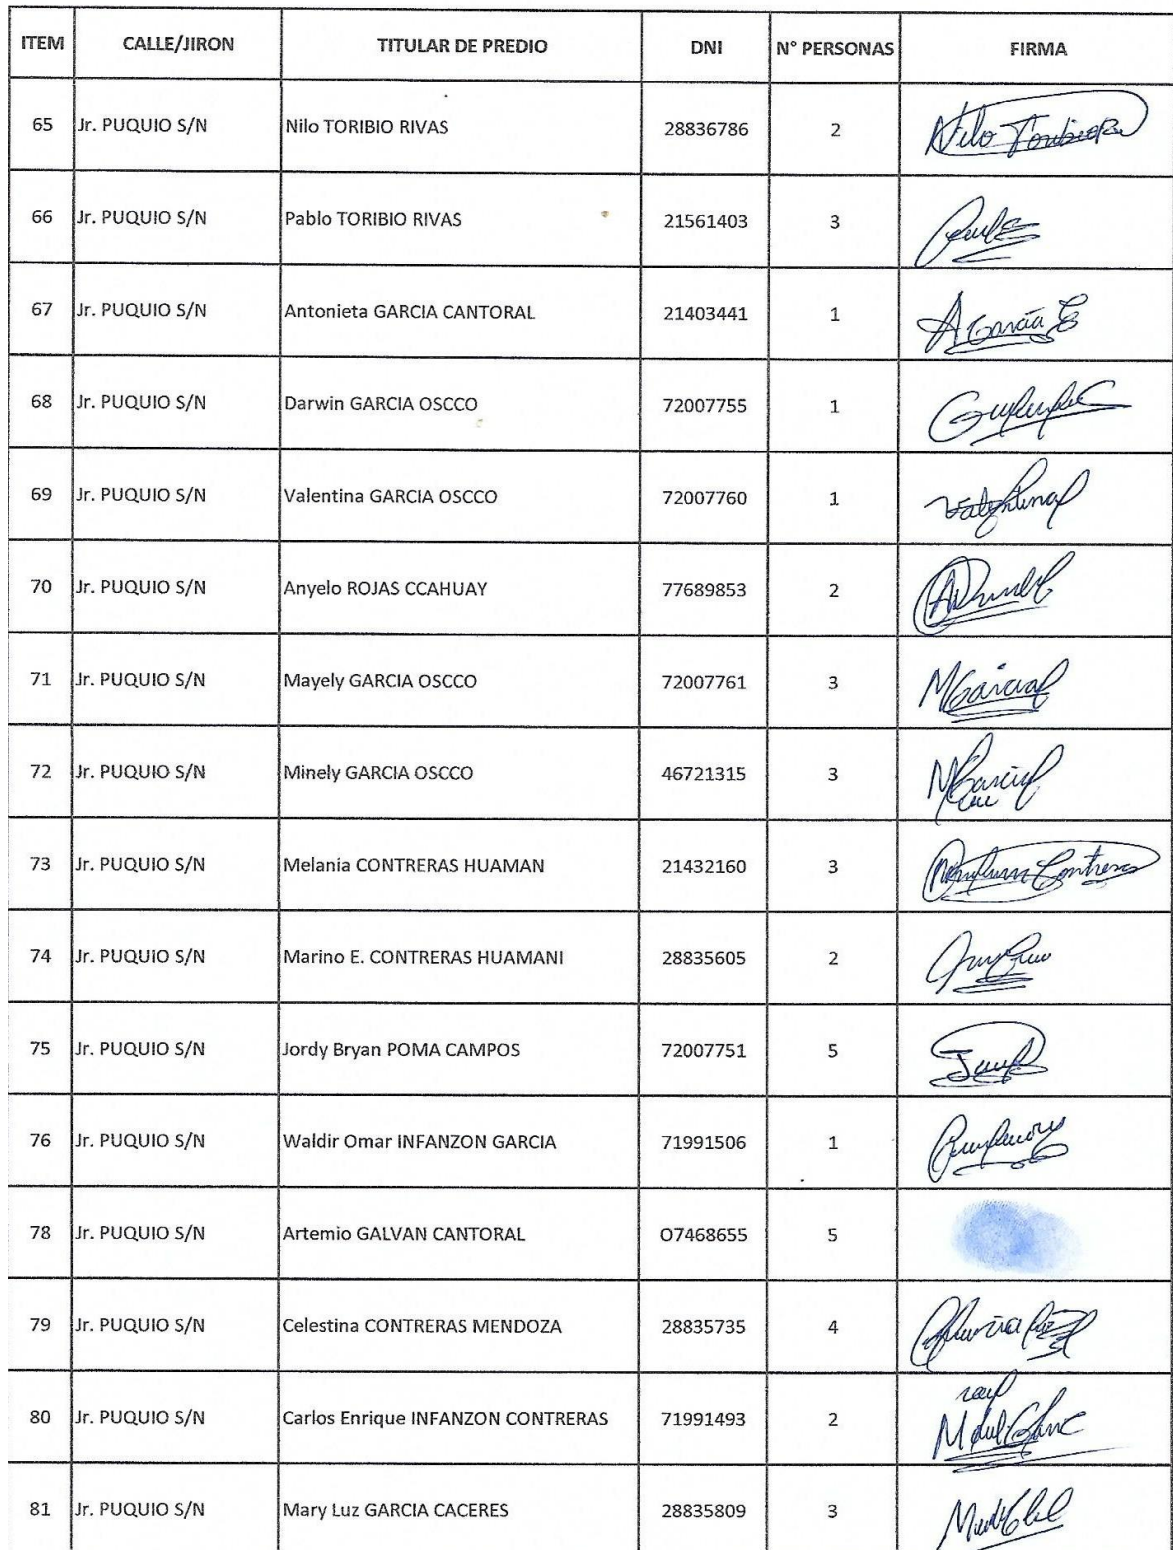 ITEM CALLE/JIRON TITULAR DE PREDIO DNI N° PERSONAS FIRMA
65 Jr. PUQUIO S/N Nilo TORIBIO RIVAS 28836786 2 Nilo Toribio R
66 Jr. PUQUIO S/N Pablo TORIBIO RIVAS 21561403 3
67 Jr. PUQUIO S/N Antonieta GARCIA CANTORAL 21403441 1 A Garcia C
68 Jr. PUQUIO S/N Darwin GARCIA OSCCO 72007755 1
69 Jr. PUQUIO S/N Valentina GARCIA OSCCO 72007760 1 Valentina
70 Jr. PUQUIO S/N Anyelo ROJAS CCAHUAY 77689853 2
71 Jr. PUQUIO S/N Mayely GARCIA OSCCO 72007761 3 MGarcia
72 Jr. PUQUIO S/N Minely GARCIA OSCCO 46721315 3 MGarcia
73 Jr. PUQUIO S/N Melania CONTRERAS HUAMAN 21432160 3 Contreras
74 Jr. PUQUIO S/N Marino E. CONTRERAS HUAMANI 28835605 2
75 Jr. PUQUIO S/N Jordy Bryan POMA CAMPOS 72007751 5
76 Jr. PUQUIO S/N Waldir Omar INFANZON GARCIA 71991506 1
78 Jr. PUQUIO S/N Artemio GALVAN CANTORAL O7468655 5
79 Jr. PUQUIO S/N Celestina CONTRERAS MENDOZA 28835735 4
80 Jr. PUQUIO S/N Carlos Enrique INFANZON CONTRERAS 71991493 2
81 Jr. PUQUIO S/N Mary Luz GARCIA CACERES 28835809 3